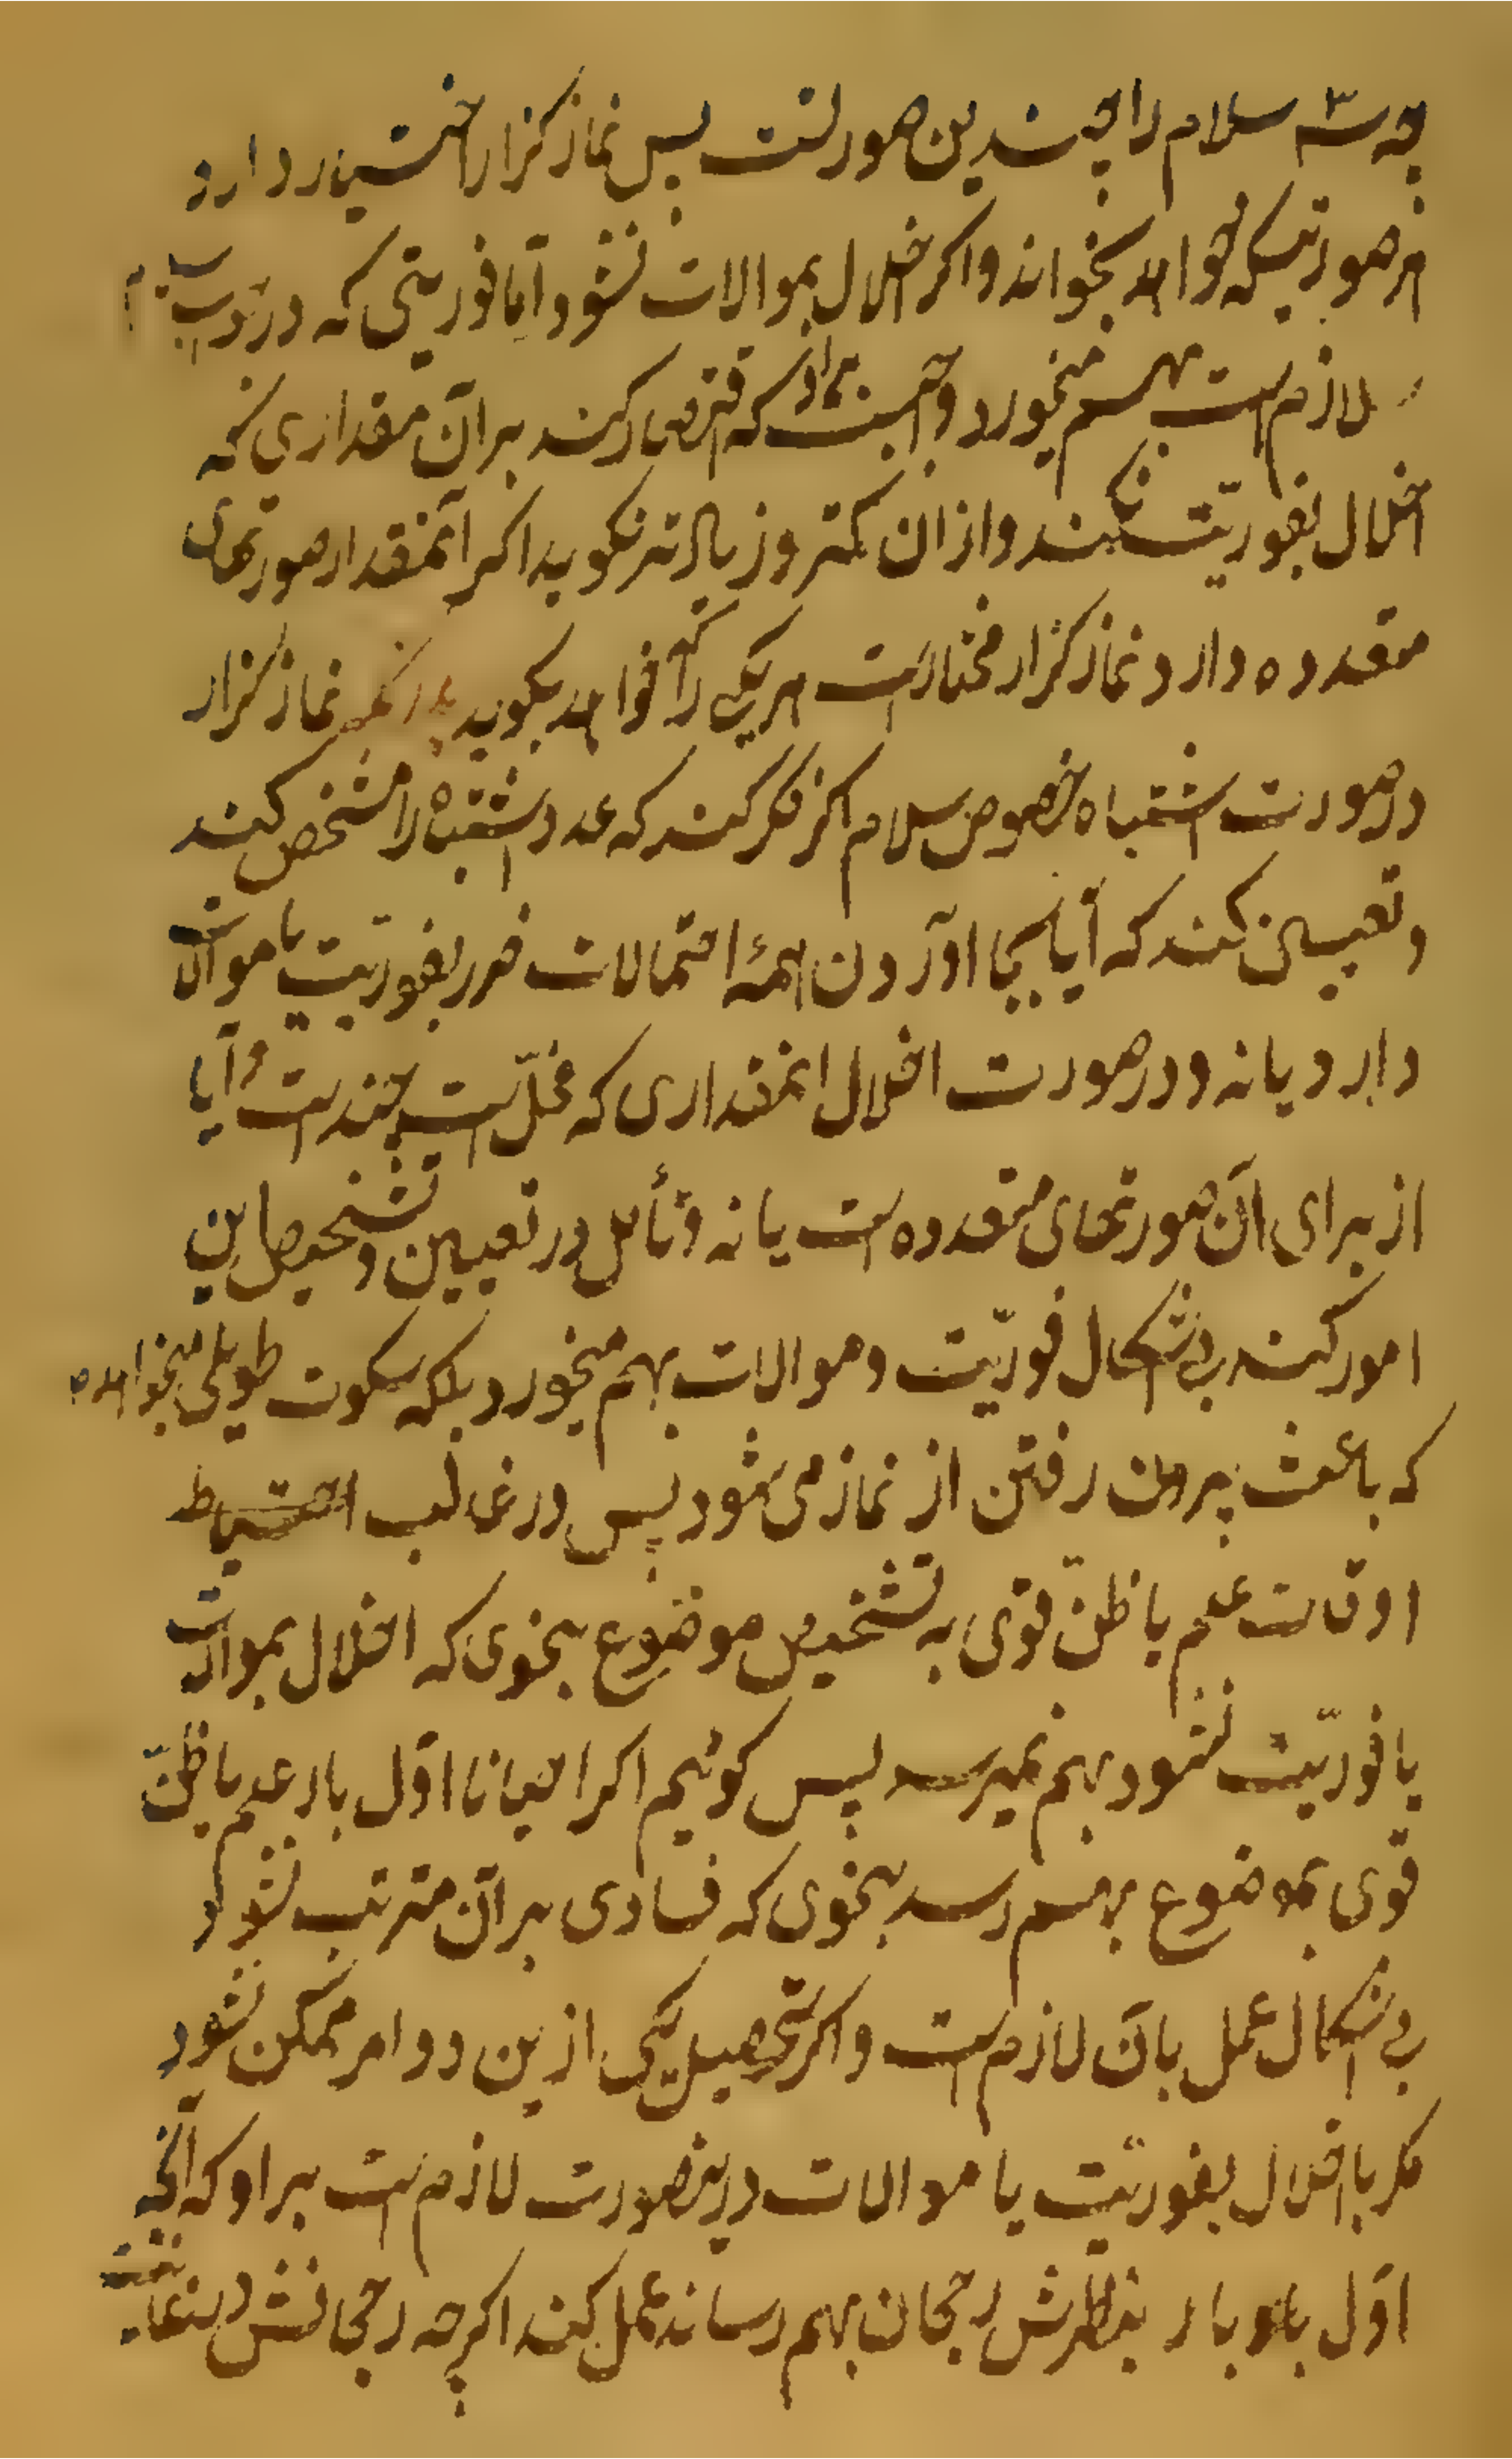 چه سه سلام را چندین صورتست پس نماز کزار اختیار دارد
هر صورتیکه خواهد بخواند و اکر اخلال بموالات نشود آیا فوریتی که در جواب سلام
لازم است بهم میخورد واجبست براو که اقتصار کند بر آن مقداری که
اخلال بفوریّت نکند و از ان کمتر و زیادتر نکوید اکر آنمقدار صورتهای
متعدده دارد نماز کزار مختارست هر یکی را که خواهد بکوید نماز کزار
در صورت اشتباه خصوص سلام اکر فکر کند که عدد اشتباه را مشخص کند
و تعیین کند که آیا بجا اوردن همهٔ احتمالات ضرر بفوریّت یا موالات
دارد یا نه و در صورت اخلال انمقداری که مخلّ است چندست و آیا
از برای آن صورتهای متعدده است یا نه و تأمل در تعیین و تشخیص این
امور کند بی اشکال فوریّت و موالات بهم میخورد بلکه سکوت طویلی میخواهد
که باعث بیرون رفتن از نماز می شود پس در غالب احتیاط
اوقات علم یا ظنّ قوی به تشخیص موضوع بنحوی که اخلال بموالات
یا فوریّت نشود بهم نمیرسد پس کوئیم اکر احیانا اوّل بار علم یا ظنّ
قوی بموضوع بهم رسد بنحوی که فسادی بر آن مترتب نشود
بی اشکال عمل بآن لازم است و اکر تحصیل یکی ازین دو امر ممکن نشود
مکر با اخلال بفوریّت یا موالات درینصورت لازم است بر او که آنچه
اوّل بار بنظرش رجحان بهم رساند عمل کند اکرچه رجحانش در نهایت